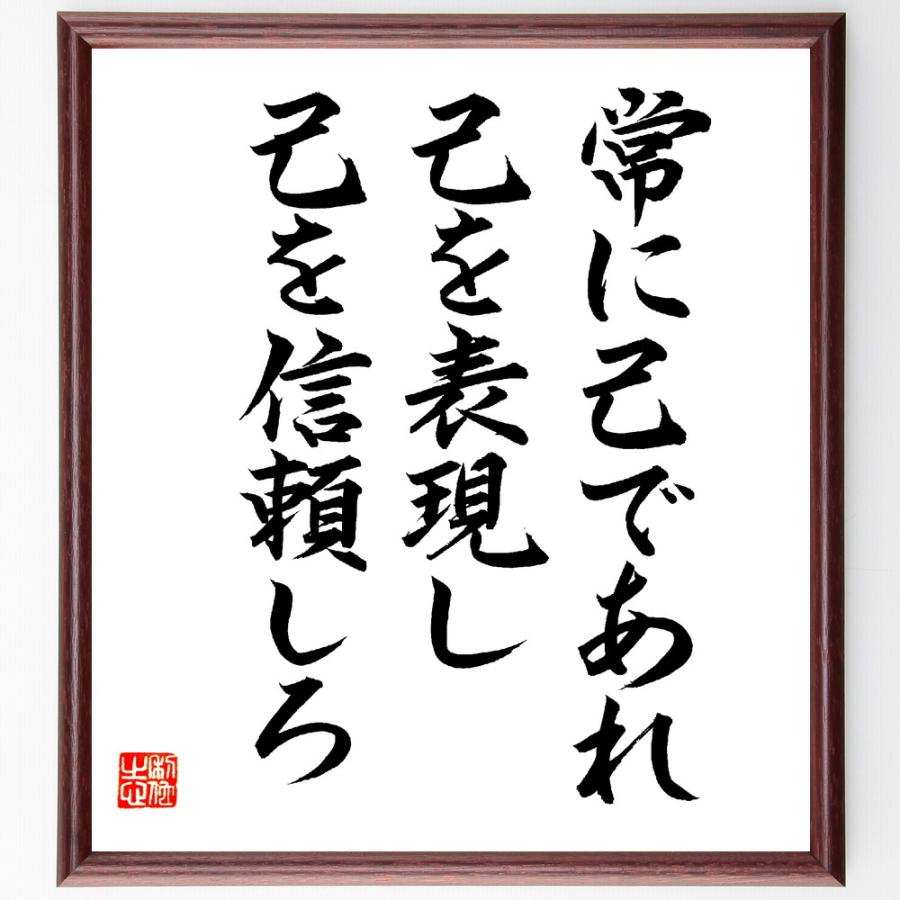 常に己であれ
己を表現し
己を信頼しろ